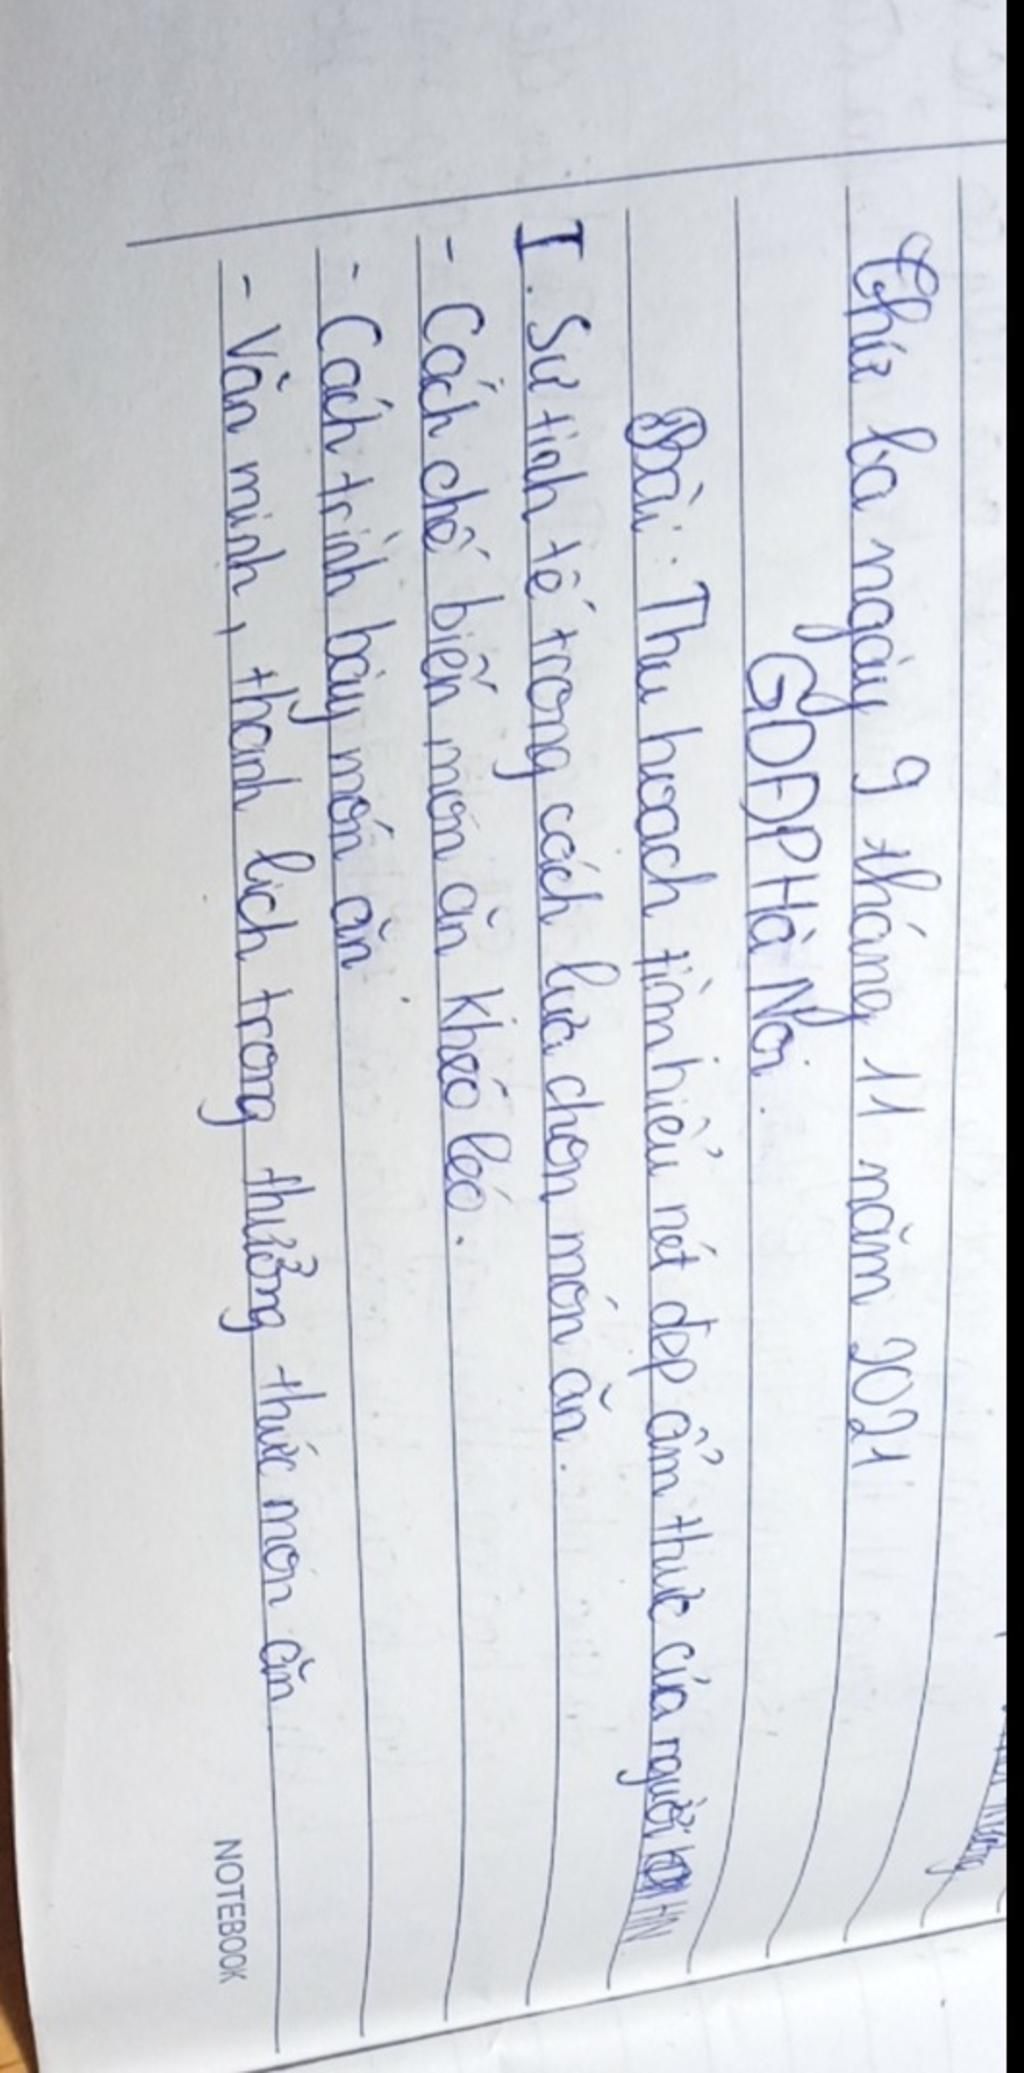 Thứ ba ngày 9 tháng 11 năm 2021
GDĐP Hà Nội.
Bài: Thu hoạch tìm hiểu nét đẹp ẩm thực của người HN
I. Sự tinh tế trong cách lựa chọn món ăn.
- Cách chế biến món ăn khéo léo.
- Cách trình bày món ăn
- Văn minh, thanh lịch trong thưởng thức món ăn
NOTEBOOK